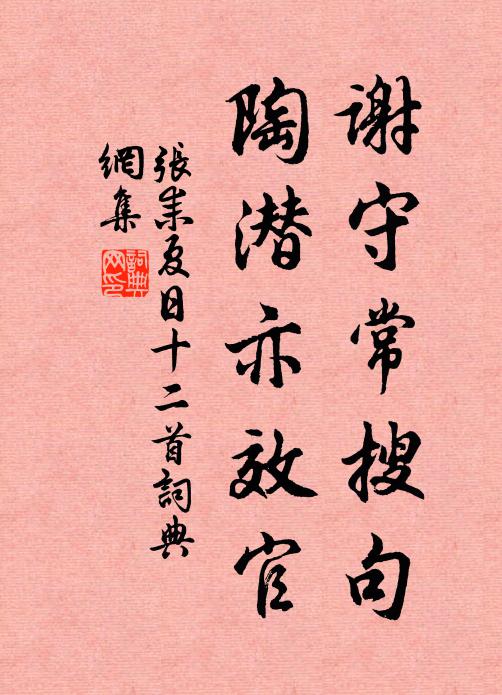 谢守常搜句
陶潜亦效官
張耒夏日十二首詞典
網集
詞典
网印